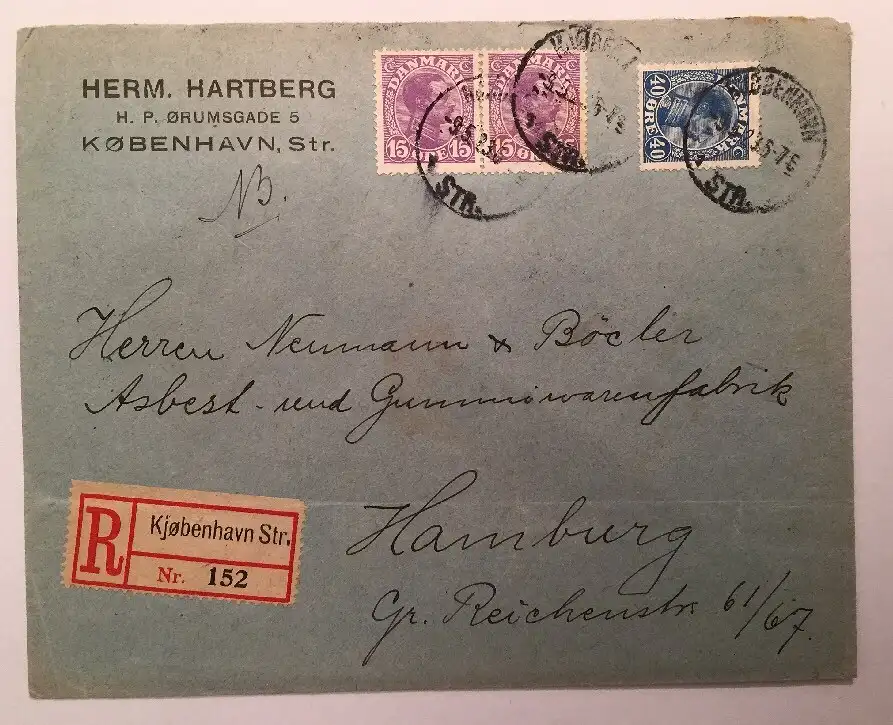 HERM. HARTBERG
H. P. ØRUMSGADE 5
KØBENHAVN, Str.
NB.
DANMARK
15 ØRE 15
DANMARK
15 ØRE
40 ØRE 40
DANMARK
STR.
KJØBENH
STR.
KJØBENHAVN
6-7E
STR.
Herren Neumann & Böcler
Asbest- und Gummiwarenfabrik
Hamburg
Gr. Reichenstr 61/67.
R
Kjøbenhavn Str.
Nr. 152